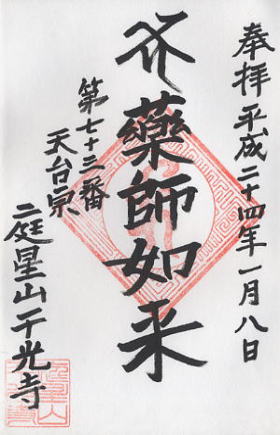 奉拝 平成二十四年一月八日
薬師如来
第七十三番
天台宗
二庭星山千光寺